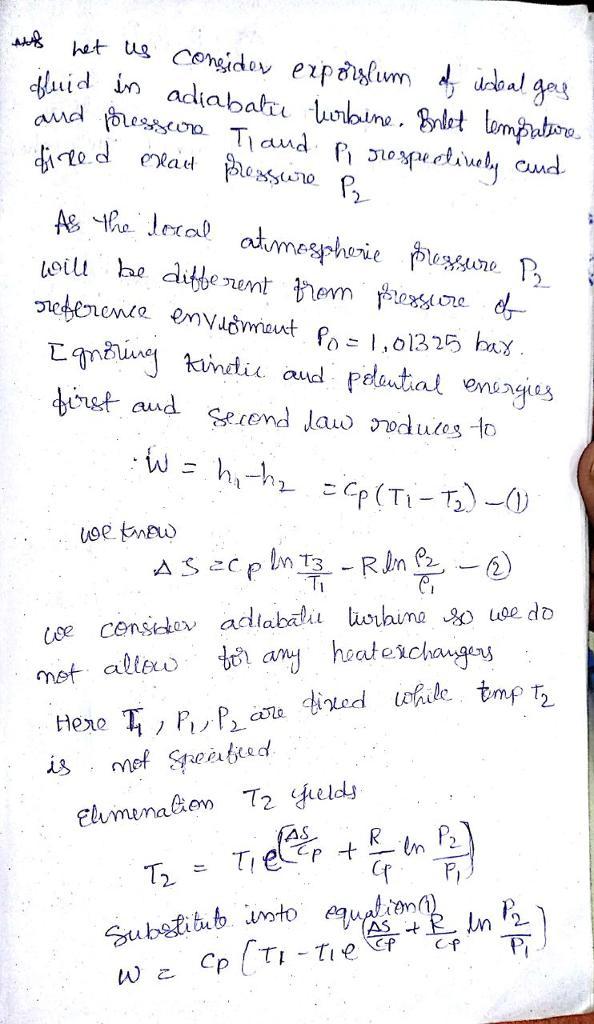 Ans Let us consider exporslum of ideal gas
fluid in adiabatic turbine. Inlet temprature
and pressure T1 and P1 respectively and
fixed exact pressure P2
As the local atmospheric pressure P2
will be different from pressure of
reference enviorment P0 = 1.01325 bar.
Ignoring kinetic and potential energies
first and second law reduces to
W = h1-h2 = Cp(T1-T2) -(1)
we know
ΔS = Cp ln T3/T1 - R ln P2/P1 - (2)
we consider adiabatic turbine so we do
not allow for any heatexchangers
Here T1, P1, P2 are fixed while temp T2
is not Specified
Elimenation T2 yields
T2 = T1e(ΔS/Cp + R/Cp ln P2/P1)
Substitute into equation(1)
W = Cp (T1 - T1e(ΔS/Cp + R/Cp ln P2/P1)